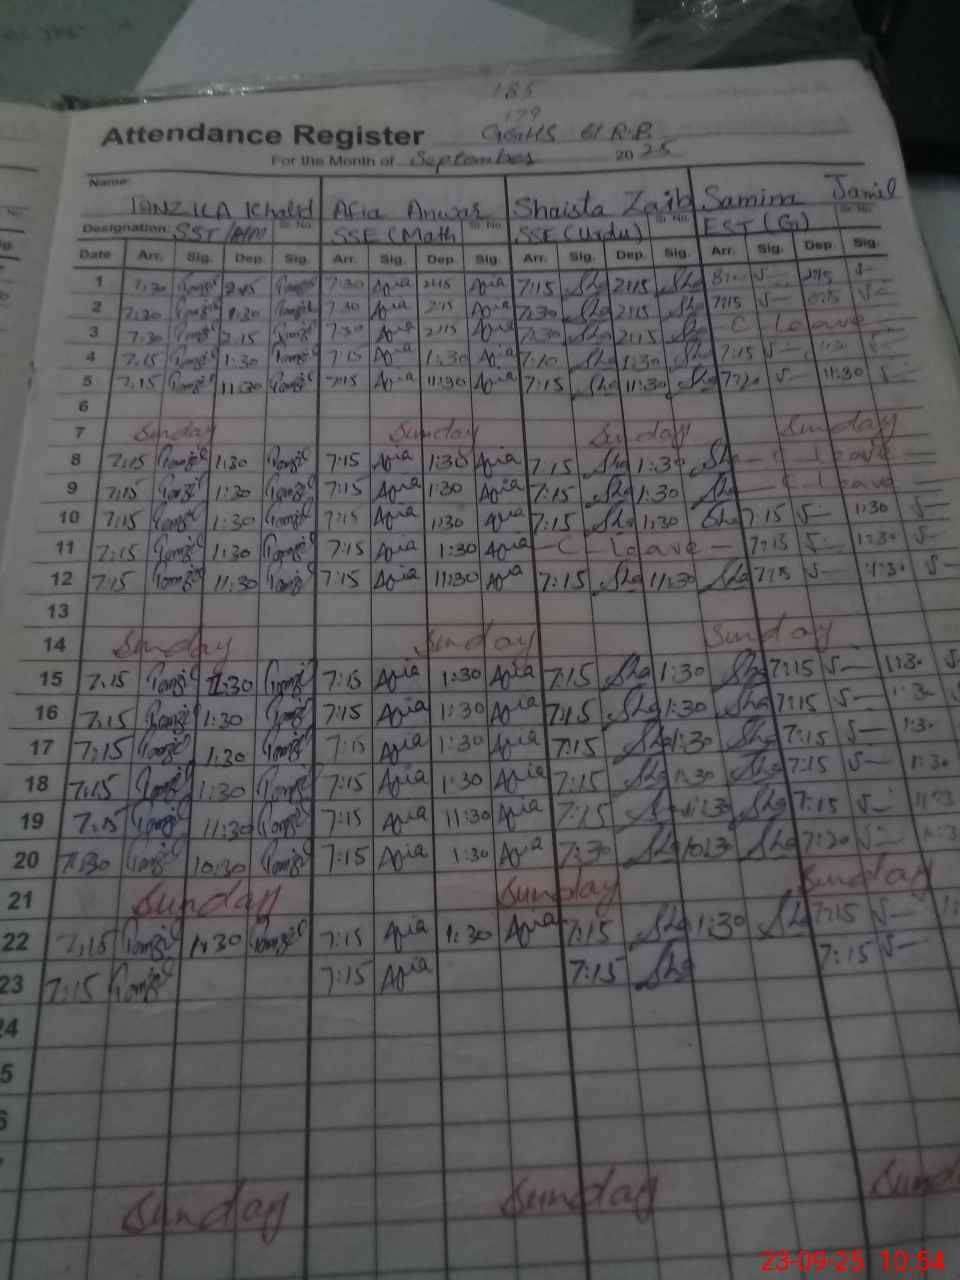 185
179
Attendance Register GGHS 61 R.B
For the Month of September 2025
Name: TANZILA Khalid Afia Anwar Shaista Zaib Samina Jamil
Designation: SST/HM Sr. No. SSE (Math Sr. No. SSE (Urdu) Sr. No. EST (G) Sr. No.
Date Arr. Sig. Dep. Sig. Arr. Sig. Dep. Sig. Arr. Sig. Dep. Sig. Arr. Sig. Dep. Sig.
1 7:30 Tanzil 2:15 Tanzil 7:30 Afia 2:15 Afia 7:15 Sha 2:15 Sha 2:15
2 7:30 Tanzil Tanzil 7:30 Afia 2:15 Afia 7:30 Sha 2:15 Sha 7:15
3 7:30 Tanzil 2:15 Tanzil 7:30 Afia 2:15 Afia 7:30 Sha 2:15 Sha - C Leave -
4 7:15 Tanzil 1:30 Tanzil 7:15 Afia 1:30 Afia 7:10 Sha 1:30 Sha 7:15
5 7:15 Tanzil 11:30 Tanzil 7:15 Afia 11:30 Afia 7:15 Sha 11:30 Sha 7:20 11:30
6
7 Sunday Sunday Sunday Sunday
8 7:15 Tanzil 1:30 Tanzil 7:15 Afia 1:30 Afia 7:15 Sha 1:30 Sha - C Leave -
9 7:15 Tanzil 1:30 Tanzil 7:15 Afia 1:30 Afia 7:15 Sha 1:30 Sha - C - Leave -
10 7:15 Tanzil 1:30 Tanzil 7:15 Afia 1:30 Afia 7:15 Sha 1:30 Sha 7:15 1:30
11 7:15 Tanzil 1:30 Tanzil 7:15 Afia 1:30 Afia - C - Leave - 7:15 1:30
12 7:15 Tanzil 11:30 Tanzil 7:15 Afia 11:30 Afia 7:15 Sha 11:30 Sha 7:15
13
14 Sunday Sunday Sunday
15 7:15 Tanzil 1:30 Tanzil 7:15 Afia 1:30 Afia 7:15 Sha 1:30 Sha 7:15 1:30
16 7:15 Tanzil 1:30 Tanzil 7:15 Afia 1:30 Afia 7:15 Sha 1:30 Sha 7:15 1:30
17 7:15 Tanzil 1:30 Tanzil 7:15 Afia 1:30 Afia 7:15 Sha 1:30 Sha 7:15 1:30
18 7:15 Tanzil 1:30 Tanzil 7:15 Afia 1:30 Afia 7:15 Sha 1:30 Sha 7:15 1:30
19 7:15 Tanzil 11:30 Tanzil 7:15 Afia 11:30 Afia 7:15 Sha 11:30 Sha 7:15
20 7:30 Tanzil 10:30 Tanzil 7:15 Afia 1:30 Afia 7:30 Sha 10:30 Sha 7:20
21 Sunday Sunday Sunday
22 7:15 Tanzil 1:30 Tanzil 7:15 Afia 1:30 Afia 7:15 Sha 1:30 Sha 7:15
23 7:15 Tanzil 7:15 Afia 7:15 Sha 7:15
24
5
6
Sunday Sunday Sund
23-09-25 10:54